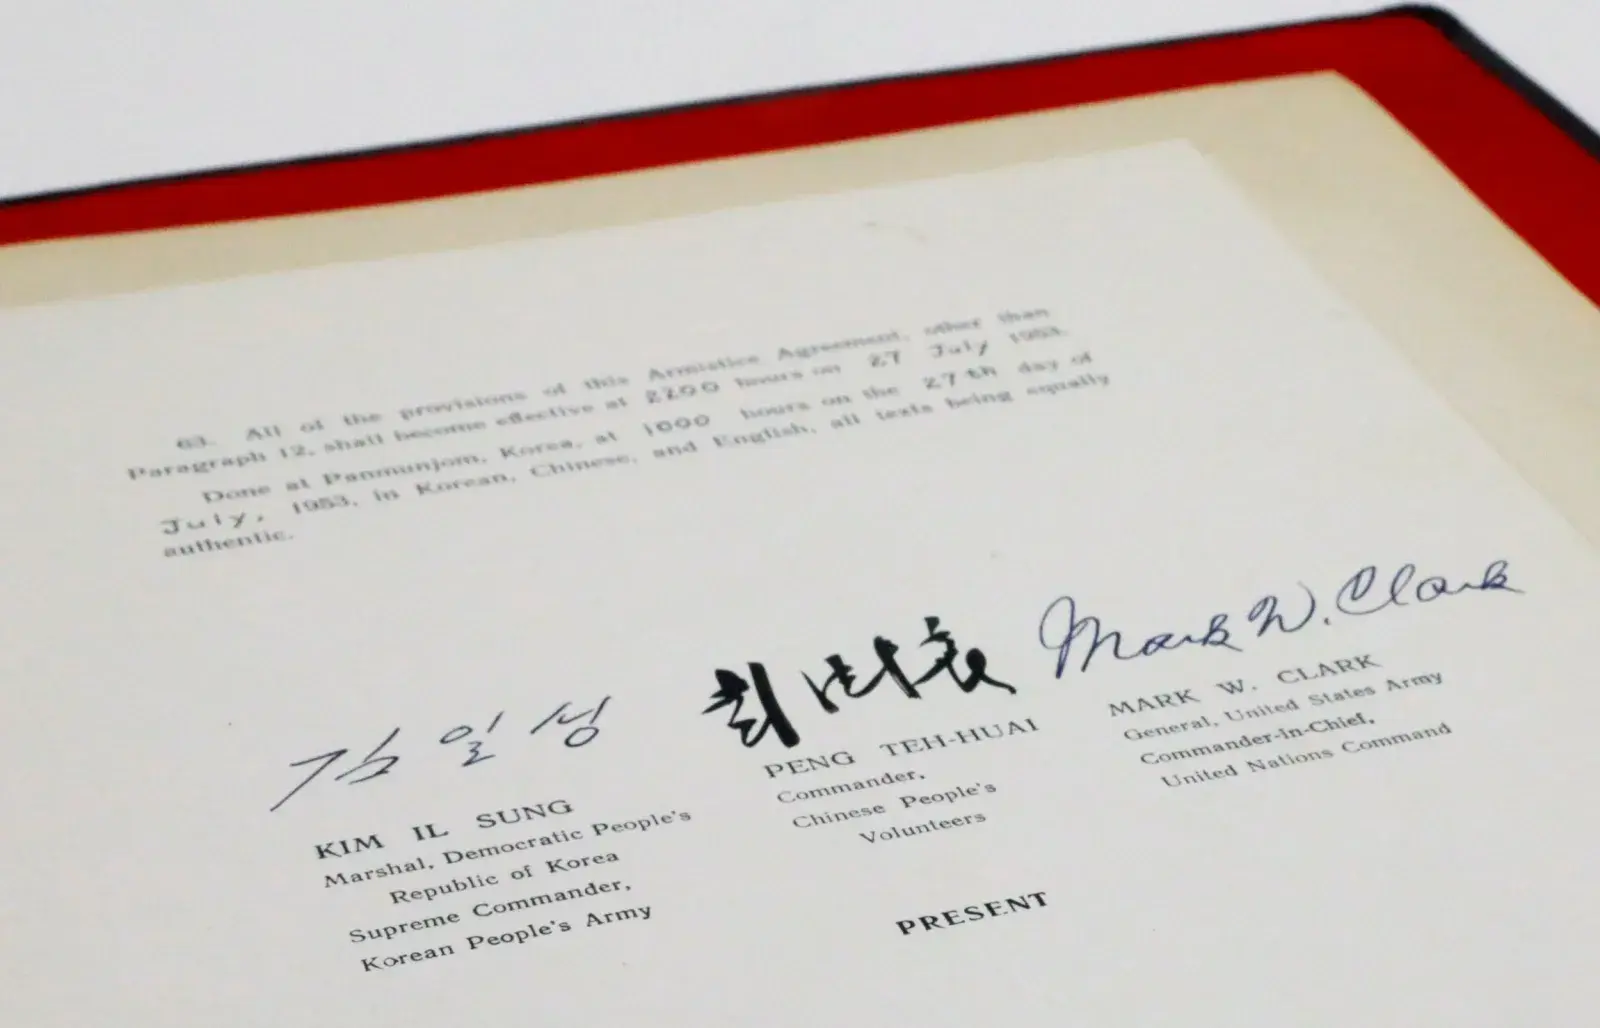 63. All of the provisions of this Armistice Agreement, other than
Paragraph 12, shall become effective at 2200 hours on 27 July 1953.
Done at Panmunjom, Korea, at 1000 hours on the 27th day of
July, 1953, in Korean, Chinese, and English, all texts being equally
authentic.
김일성
彭德怀
Mark W. Clark
KIM IL SUNG
Marshal, Democratic People's
Republic of Korea
Supreme Commander,
Korean People's Army
PENG TEH-HUAI
Commander,
Chinese People's
Volunteers
MARK W. CLARK
General, United States Army
Commander-in-Chief,
United Nations Command
PRESENT